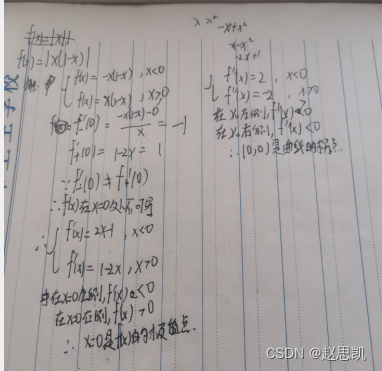 f(x)=|x|
f(x)=|x(1-x)|
解:
f(x)=-x(1-x) , x<0
f(x)=x(1-x) , x>0
f'-(0)=\frac{-x(1-x)-0}{x}=-1
f'+(0)=1-2x=1
∵f'-(0)≠f'+(0)
∴f(x)在x=0处不可导
f'(x)=2x-1 , x<0
f'(x)=1-2x , x>0
在x=0左侧,f'(x)<0
在x=0右侧,f'(x)>0
∴ x=0是f(x)的极值点.
x x²
-x+x²
x-x²
-2x+1
f''(x)=2 , x<0
f''(x)=-2 , x>0
在x。左侧,f''(x)>0
在x。右侧,f''(x)<0
∴(0,0)是曲线的拐点.
CSDN @赵思凯